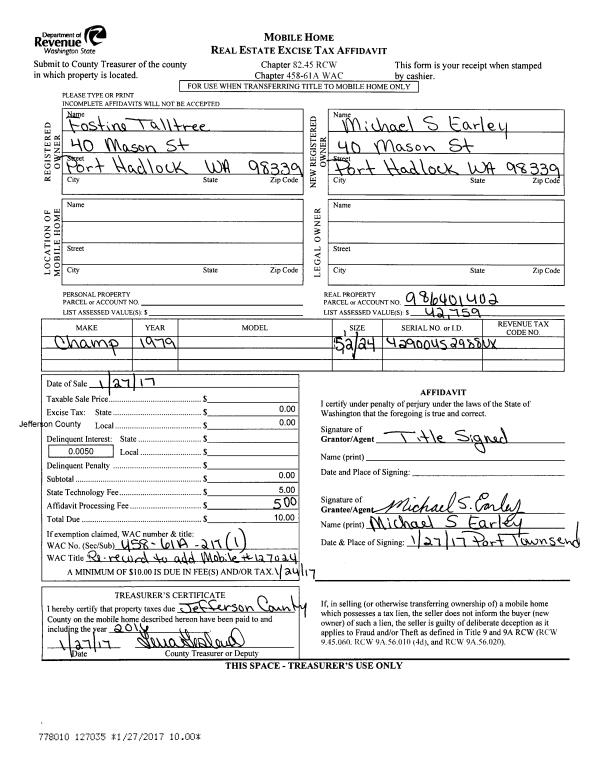 Department of
Revenue
Washington State
MOBILE HOME
REAL ESTATE EXCISE TAX AFFIDAVIT
Submit to County Treasurer of the county
in which property is located.
Chapter 82.45 RCW
Chapter 458-61A WAC
This form is your receipt when stamped
by cashier.
FOR USE WHEN TRANSFERRING TITLE TO MOBILE HOME ONLY
PLEASE TYPE OR PRINT
INCOMPLETE AFFIDAVITS WILL NOT BE ACCEPTED
REGISTERED OWNER
Name
Fostine Talltree
40 Mason St
Street
Port Hadlock WA 98339
City State Zip Code
NEW REGISTERED OWNER
Name
Michael S Earley
40 Mason St
Street
Port Hadlock WA 98339
City State Zip Code
LOCATION OF MOBILE HOME
Name
Street
City State Zip Code
LEGAL OWNER
Name
Street
City State Zip Code
PERSONAL PROPERTY
PARCEL or ACCOUNT NO.
LIST ASSESSED VALUE(S): $
REAL PROPERTY
PARCEL or ACCOUNT NO. 986401402
LIST ASSESSED VALUE(S): $ 42,759
MAKE YEAR MODEL SIZE SERIAL NO. or I.D. REVENUE TAX CODE NO.
Champ 1979 52/24 4290045298UX
Date of Sale 1/27/17
Taxable Sale Price $
Excise Tax: State $ 0.00
Jefferson County Local $ 0.00
Delinquent Interest: State $
0.0050 Local $
Delinquent Penalty $
Subtotal $ 0.00
State Technology Fee $ 5.00
Affidavit Processing Fee $ 5.00
Total Due $ 10.00
If exemption claimed, WAC number & title:
WAC No. (Sec/Sub) 458-61A-217(1)
WAC Title Re-record to add Mobile #127024
A MINIMUM OF $10.00 IS DUE IN FEE(S) AND/OR TAX. 1/24/17
AFFIDAVIT
I certify under penalty of perjury under the laws of the State of
Washington that the foregoing is true and correct.
Signature of
Grantor/Agent Title Signed
Name (print)
Date and Place of Signing:
Signature of
Grantee/Agent Michael S. Earley
Name (print) Michael S Earley
Date & Place of Signing: 1/27/17 Port Townsend
TREASURER'S CERTIFICATE
I hereby certify that property taxes due Jefferson County
County on the mobile home described hereon have been paid to and
including the year 2016
1/27/17
Date County Treasurer or Deputy
If, in selling (or otherwise transferring ownership of) a mobile home
which possesses a tax lien, the seller does not inform the buyer (new
owner) of such a lien, the seller is guilty of deliberate deception as it
applies to Fraud and/or Theft as defined in Title 9 and 9A RCW (RCW
9.45.060, RCW 9A.56.010 (4d), and RCW 9A.56.020).
THIS SPACE - TREASURER'S USE ONLY
778010 127035 *1/27/2017 10.00*